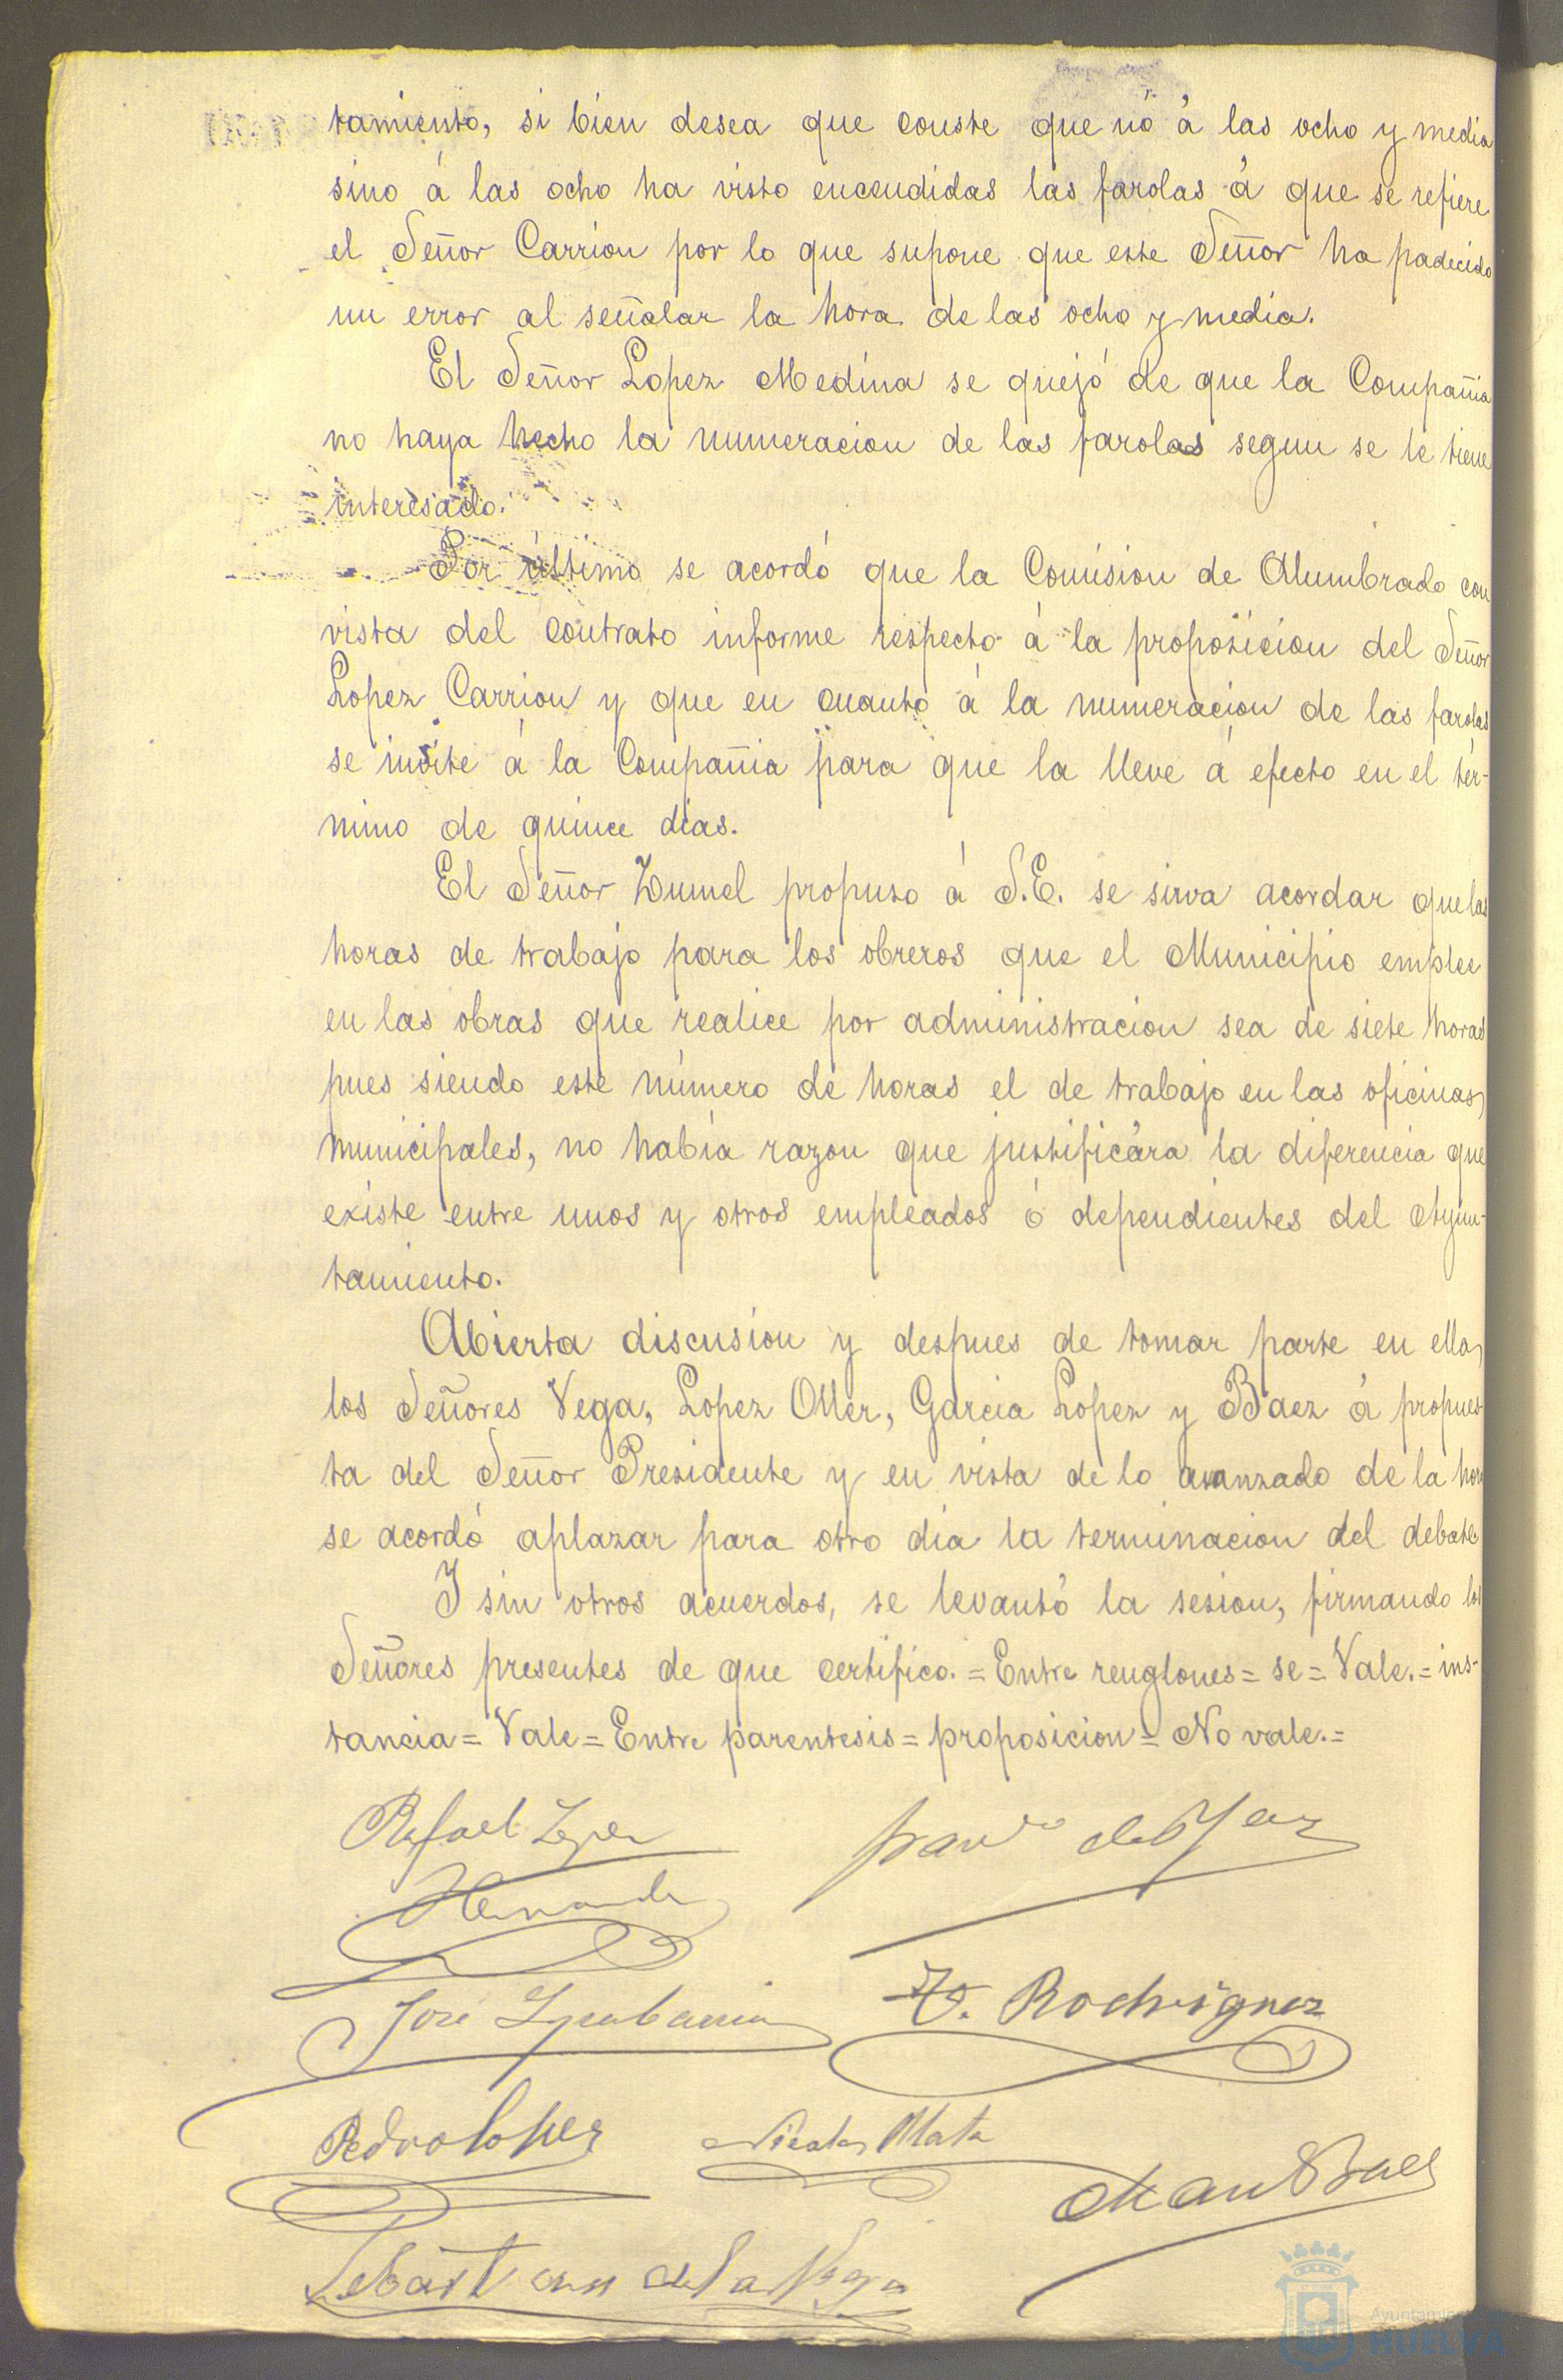 tamiento, si bien desea que conste que nó á las ocho y media
sino á las ocho ha visto encendidas las farolas á que se refiere
el Señor Carrion por lo que supone que este Señor ha padecido
un error al señalar la hora de las ocho y media.
El Señor Lopez Medina se quejó de que la Compañia
no haya hecho la numeracion de las farolas segun se le tiene
interesado.
Por último se acordó que la Comision de Alumbrado con
vista del contrato informe respecto á la proposicion del Señor
Lopez Carrion y que en cuanto á la numeracion de las farolas
se invite á la Compañia para que la lleve á efecto en el tér-
mino de quince dias.
El Señor Zumel propuso á S.E. se sirva acordar que las
horas de trabajo para los obreros que el Municipio emplee
en las obras que realice por administracion sea de siete horas
pues siendo este número de horas el de trabajo en las oficinas
municipales, no había razon que justificára la diferencia que
existe entre unos y otros empleados ó dependientes del Ayun-
tamiento.
Abierta discusion y despues de tomar parte en ella
los Señores Vega, Lopez Oller, Garcia Lopez y Baez á propues-
ta del Señor Presidente y en vista de lo avanzado de la hora
se acordó aplazar para otro dia la terminacion del debate
Y sin otros acuerdos, se levantó la sesion, firmando los
Señores presentes de que certifico. = Entre renglones = se = Vale. = ins-
tancia = Vale = Entre parentesis = proposicion = No vale. =
Rafael
Hernandez
José
F. Rodriguez
Pedro Lopez
Nicolas Mata
Man Baez
Sebastian de la Vega
Ayuntamiento
HUELVA